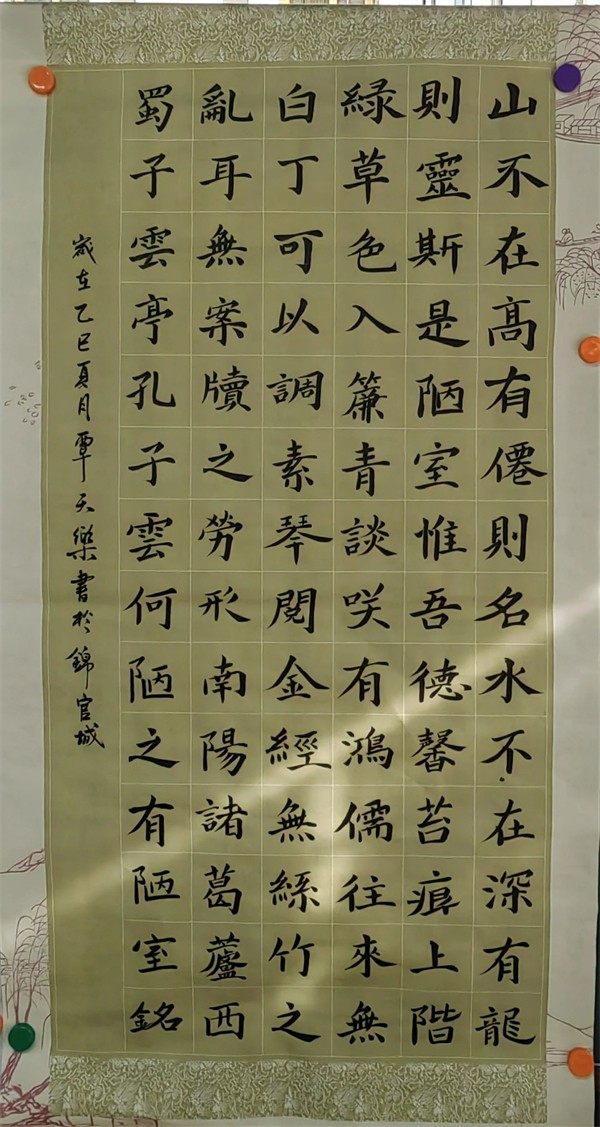 山不在高有僊則名水不在深有龍
則靈斯是陋室惟吾德馨苔痕上階
緑草色入簾青談咲有鴻儒往來無
白丁可以調素琴閱金經無絲竹之
亂耳無案牘之勞形南陽諸葛蘆西
蜀子雲亭孔子雲何陋之有陋室銘
歲在乙巳夏月覃天樂書於錦官城